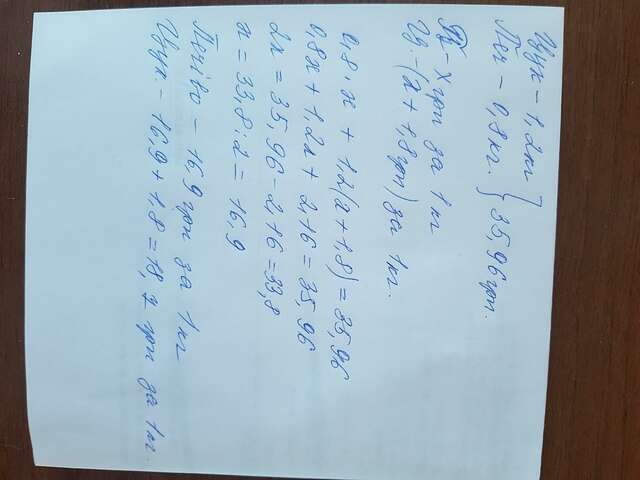 Цук - 1,2кг
Печ - 0,8кг. } 35,96 грн.
- х грн за 1 кг
Ц. - (х + 1,8грн) за 1кг.
0,8 · х + 1,2(х + 1,8) = 35,96
0,8х + 1,2х + 2,16 = 35,96
2х = 35,96 - 2,16 = 33,8
х = 33,8 : 2 = 16,9
Печіво - 16,9 грн за 1 кг
Цук - 16,9 + 1,8 = 18,7 грн за 1 кг.